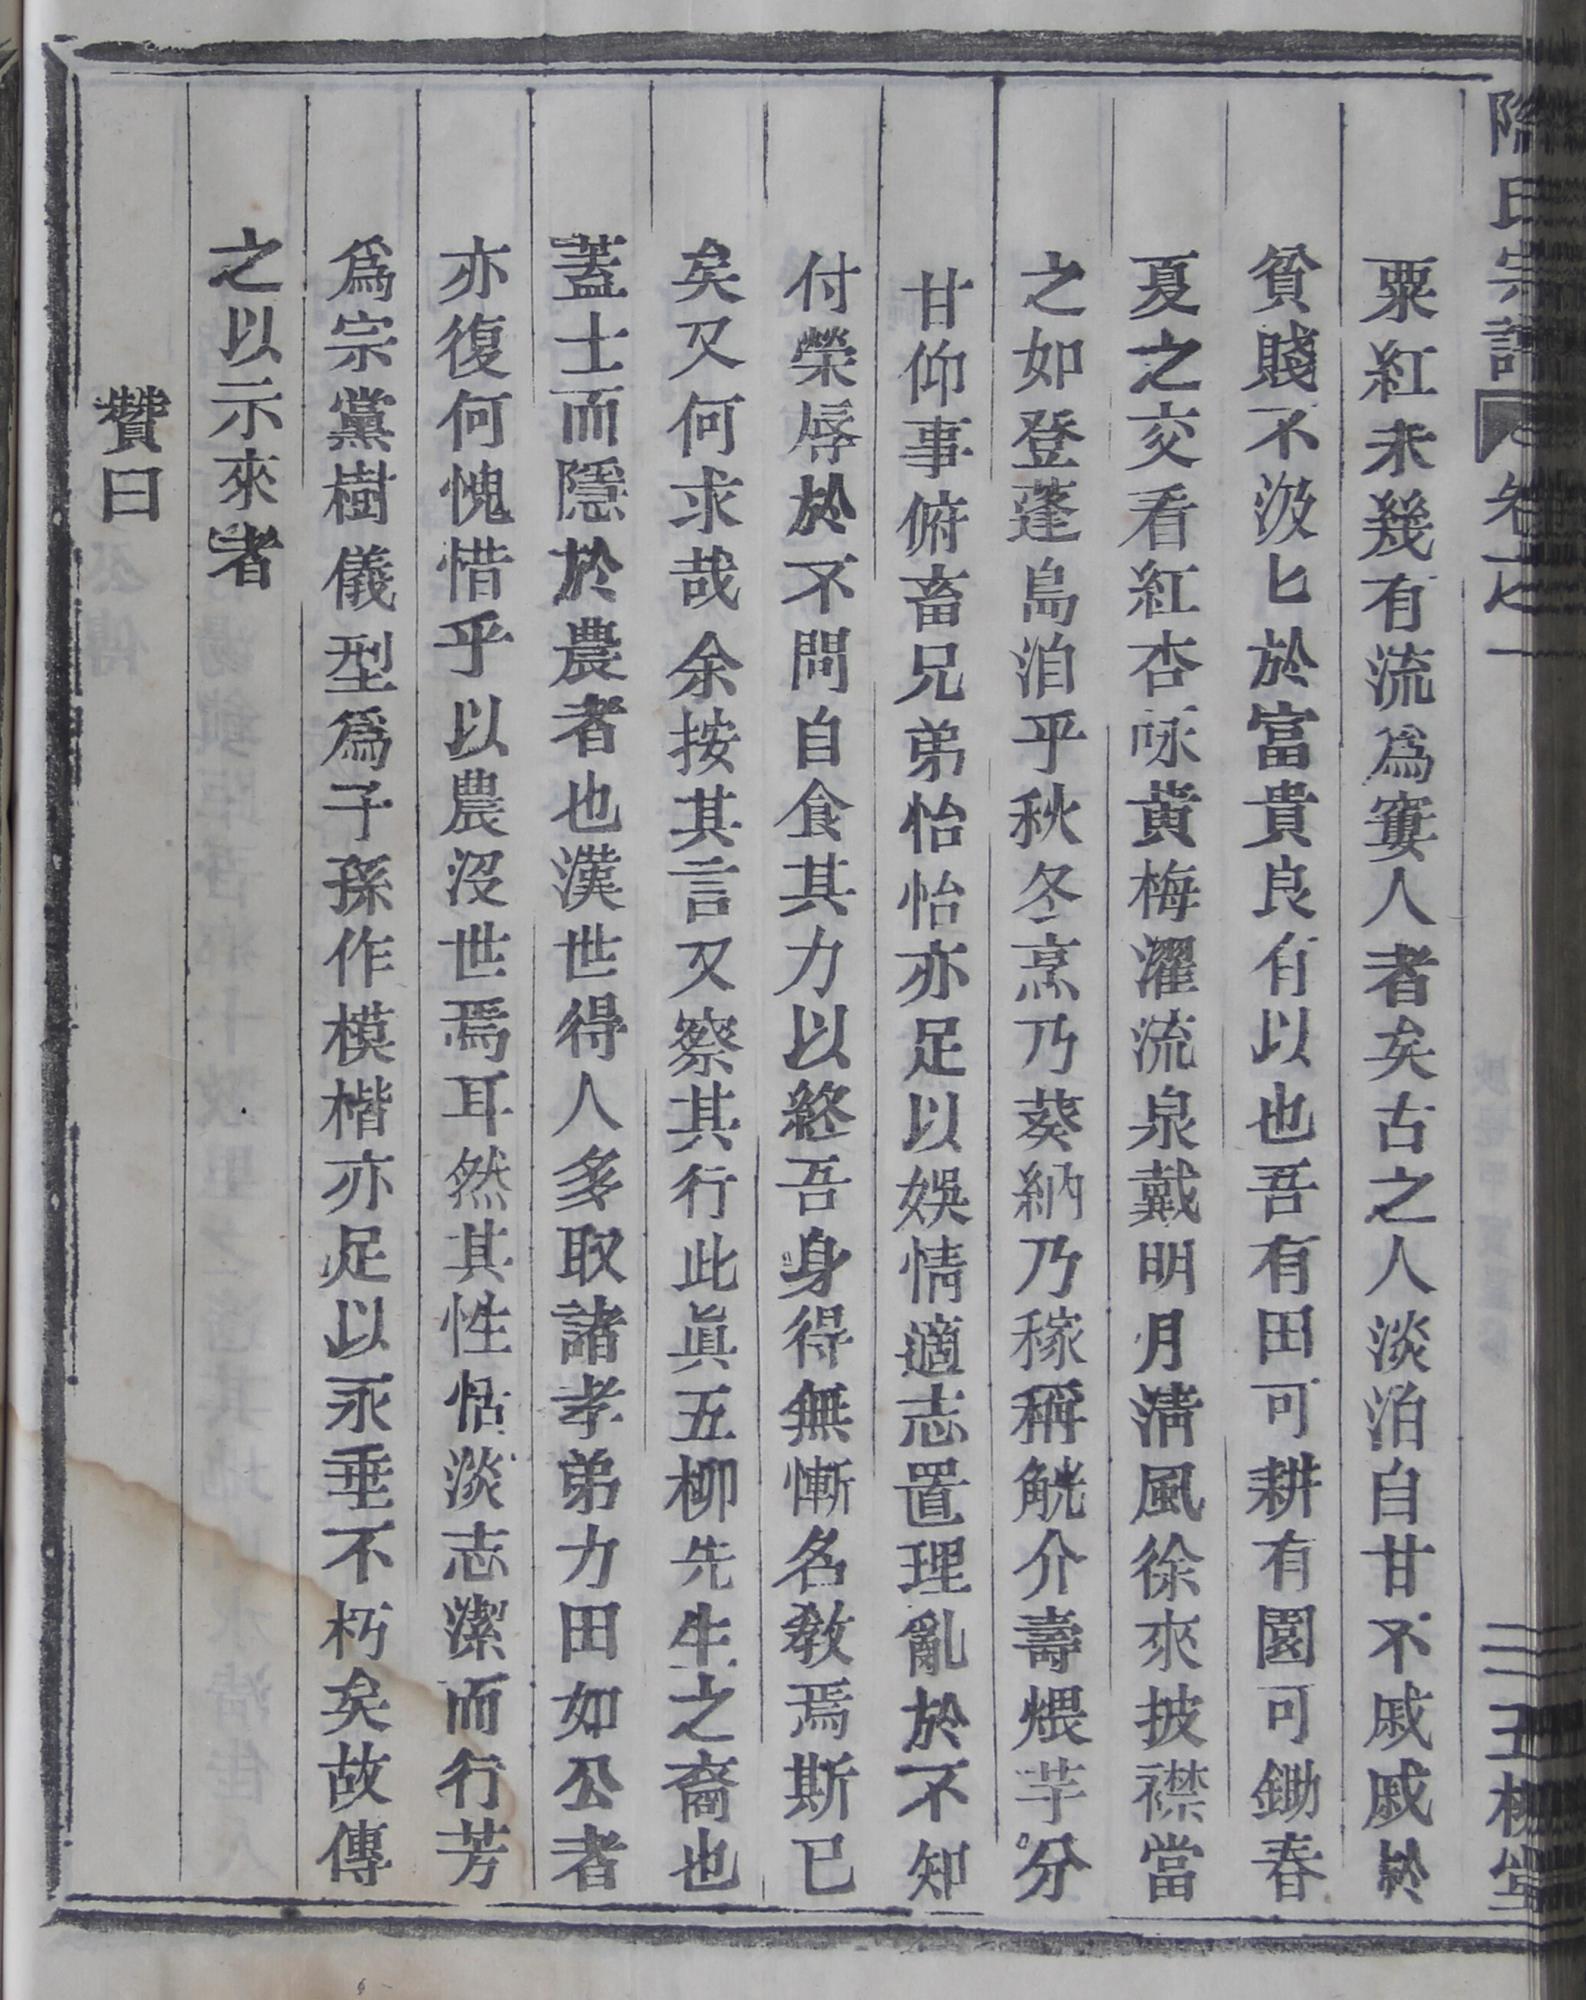 粟紅未幾有流爲窶人者矣古之人淡泊自甘不戚戚於
貧賤不汲匕於富貴良有以也吾有田可耕有園可鋤春
夏之交看紅杏咏黄梅濯流泉戴明月淸風徐來披襟當
之如登蓬島洎乎秋冬烹乃葵納乃稼稱觥介壽煨芋分
甘仰事俯畜兄弟怡怡亦足以娛情適志置理亂於不知
付榮辱於不問自食其力以終吾身得無慚名教焉斯已
矣又何求哉余按其言又察其行此眞五柳先生之裔也
蓋士而隱於農者也漢世得人多取諸孝弟力田如公者
亦復何愧惜乎以農沒世焉耳然其性恬淡志潔而行芳
爲宗黨樹儀型爲子孫作模楷亦足以永垂不朽矣故傳
之以示來者
贊曰
氏宗譜 卷七
五柳堂